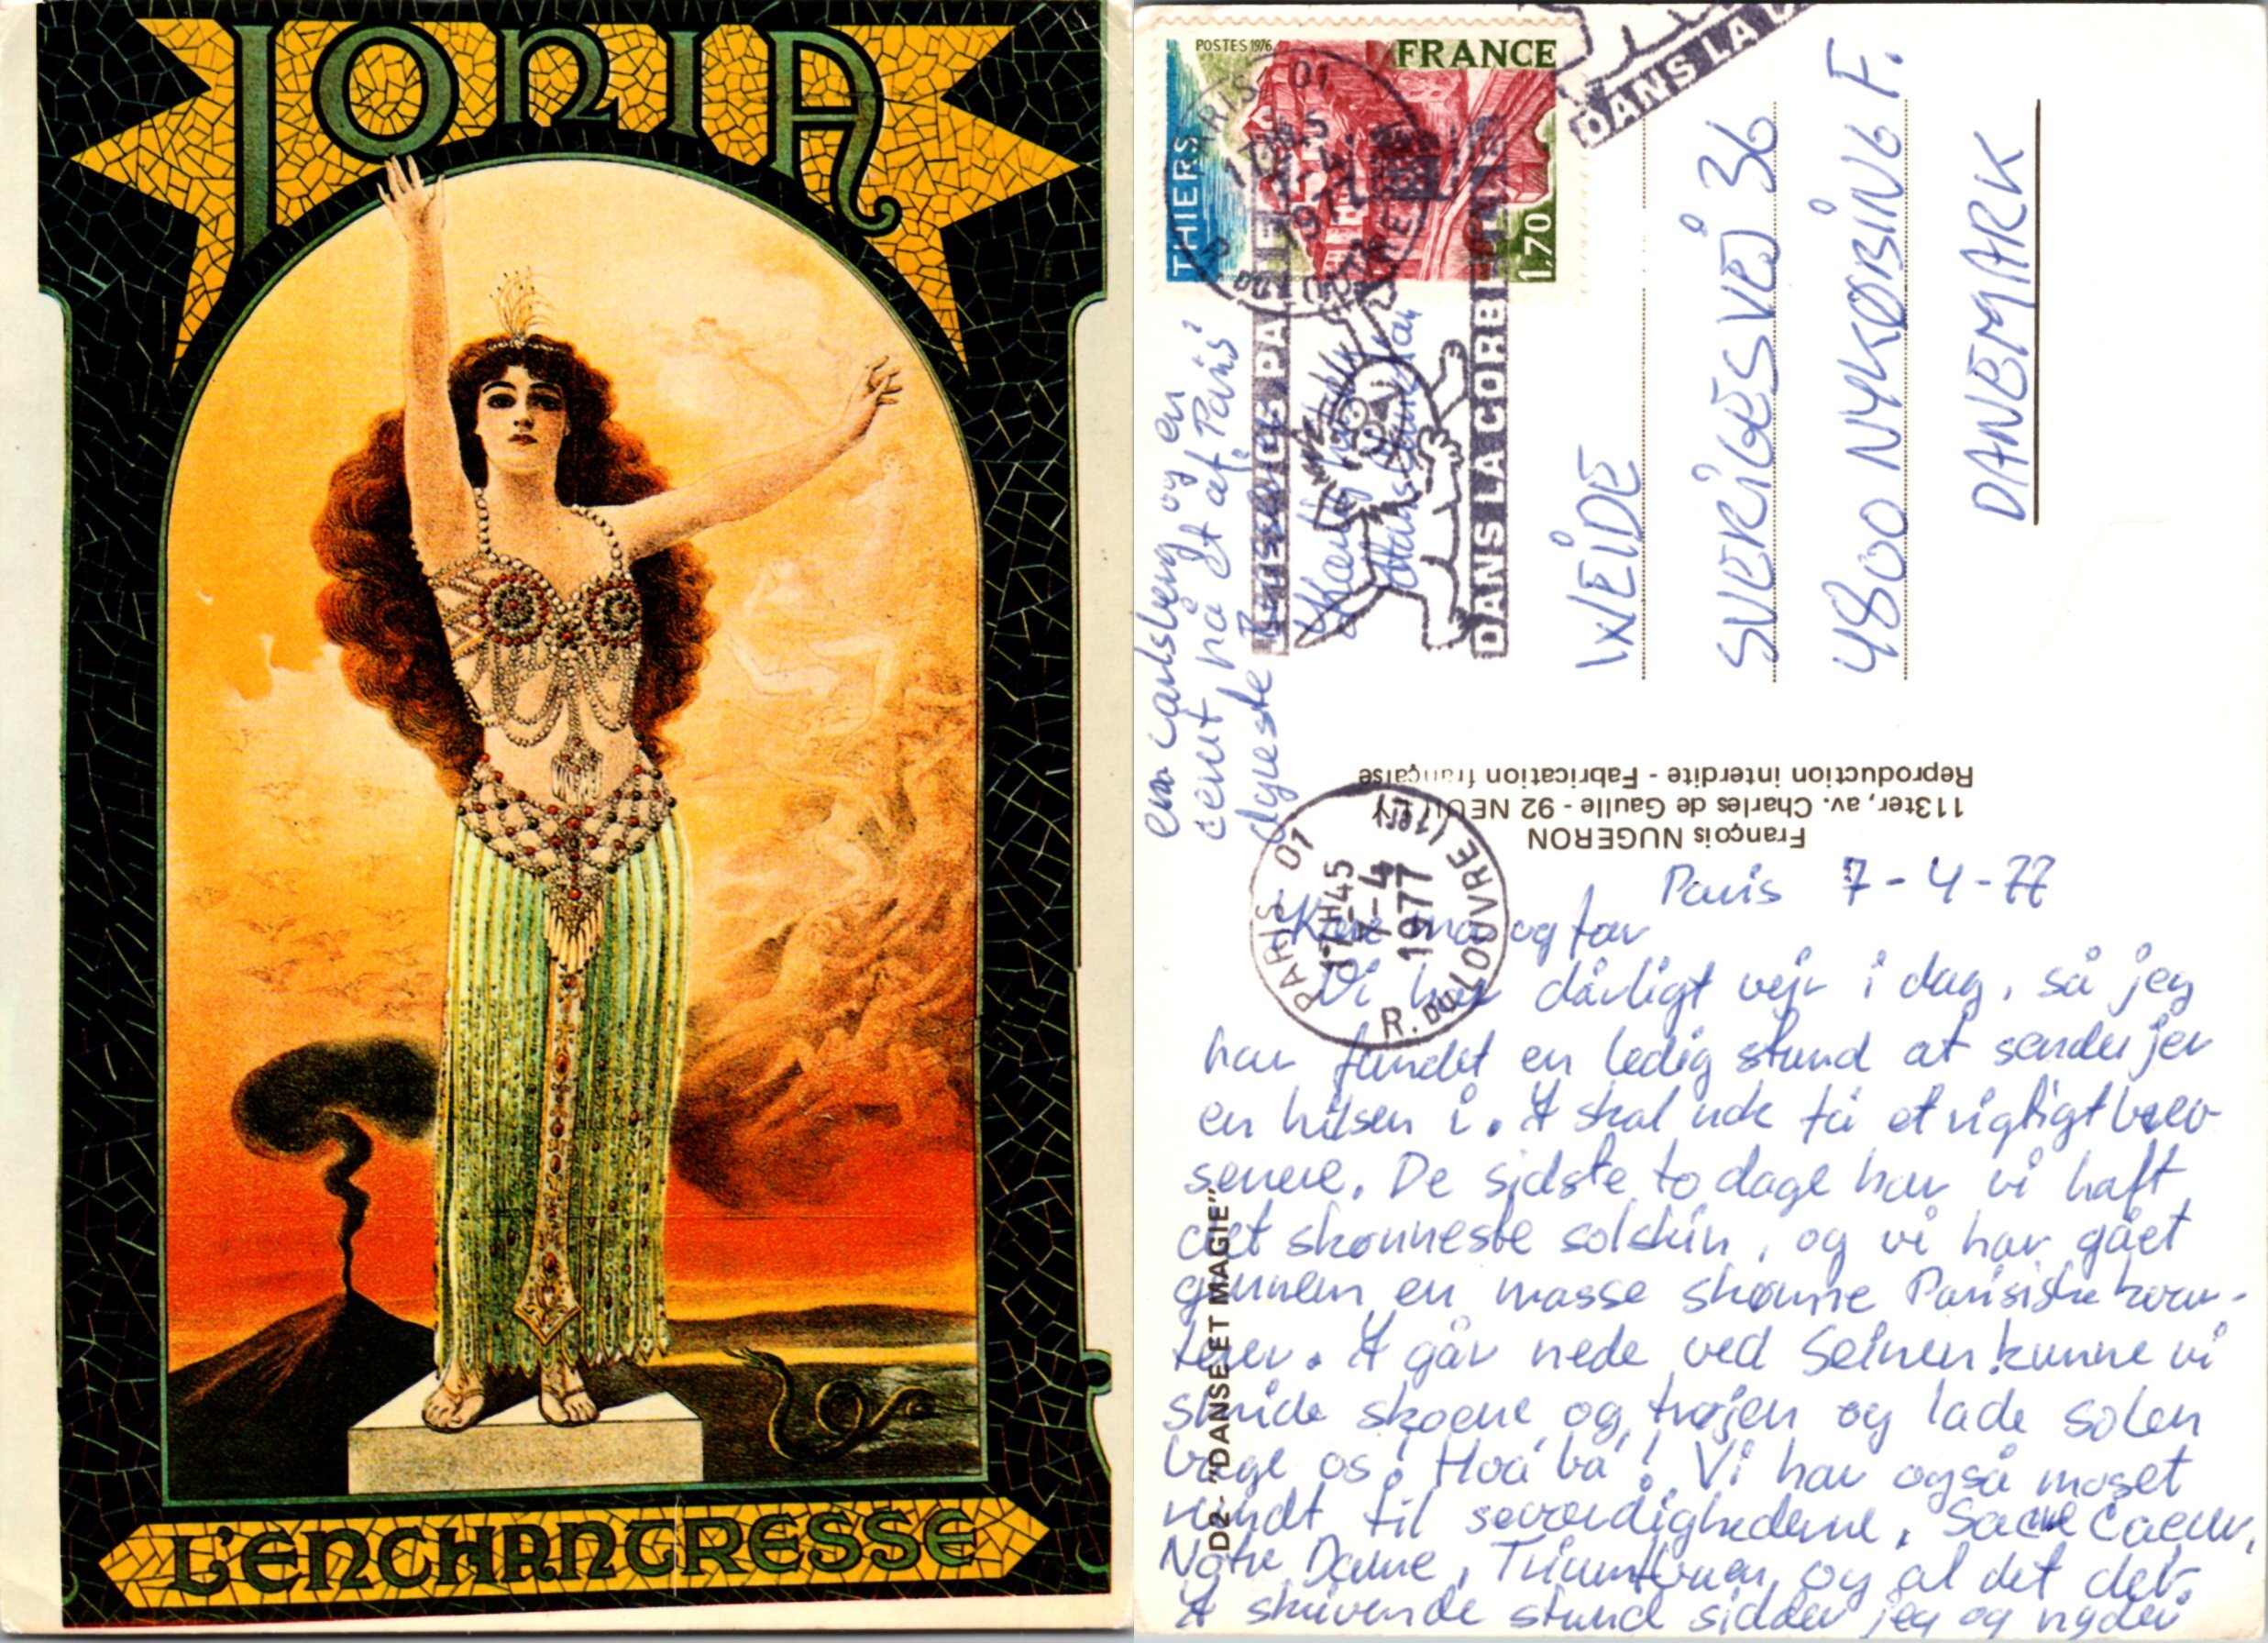 IONIA
L'ENCHANTRESSE
POSTES 1976
FRANCE
THIERS
1,70
PARIS 01
1977
DANS LA
DANS LA CORB
WEIDE
SVERIGESVEJ 36
4800 NYKØBING F.
DANEMARK
François NUGERON
113ter, av. Charles de Gaulle - 92 NEUILLY
Reproduction interdite - Fabrication française
PARIS 01
17H45
7-4
1977
R. DU LOUVRE (1er)
D2 - "DANSE ET MAGIE"
Paris 7-4-77
Kære mor og far
Vi har dårligt vejr i dag, så jeg
har fundet en ledig stund at sende jer
en hilsen i. I skal nok få et rigtigt brev
senere. De sidste to dage har vi haft
det skønneste solskin, og vi har gået
gennem en masse skønne Parisiske kvar-
terer. I går nede ved Seinen kunne vi
smide skoene og trøjen og lade solen
bage os! Hoá bá! Vi har også moset
rundt til seværdighederne, Sacre Caeur,
Notre Dame, Triumfbuen, og al det der.
I skrivende stund sidder jeg og nyder
en carlsberg og en
cerut på et af Paris'
dyreste
Kærlig hilsen